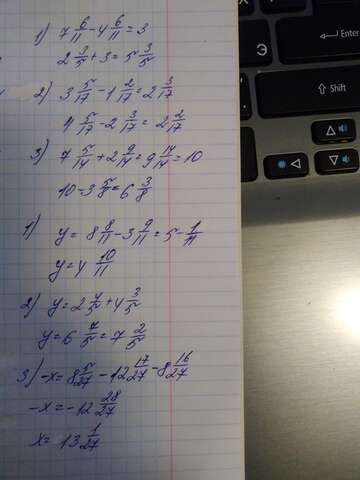 1) 7 6/11 - 4 6/11 = 3
2 3/5 + 3 = 5 3/5
2) 3 5/17 - 1 2/17 = 2 3/17
4 5/17 - 2 3/17 = 2 2/17
3) 7 5/14 + 2 9/14 = 9 14/14 = 10
10 - 3 5/8 = 6 3/8
1) y = 8 8/11 - 3 9/11 = 5 - 1/11
y = 4 10/11
2) y = 2 4/5 + 4 3/5
y = 6 7/5 = 7 2/5
3) -x = 8 5/27 - 12 17/27 - 8 16/27
-x = -12 28/27
x = 13 1/27
Э
Shift